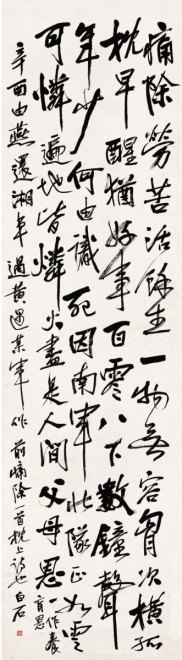 痛除勞苦活餘生一物無容胷次横孤
枕早醒猶好事百零八下數鐘聲
年少何由識死因南軍北隊正如雲
可憐遍地皆燐火盡是人間父母恩一作養育恩
辛酉由燕還湘車過黄過某軍作前痛除一首枕上詩也白石